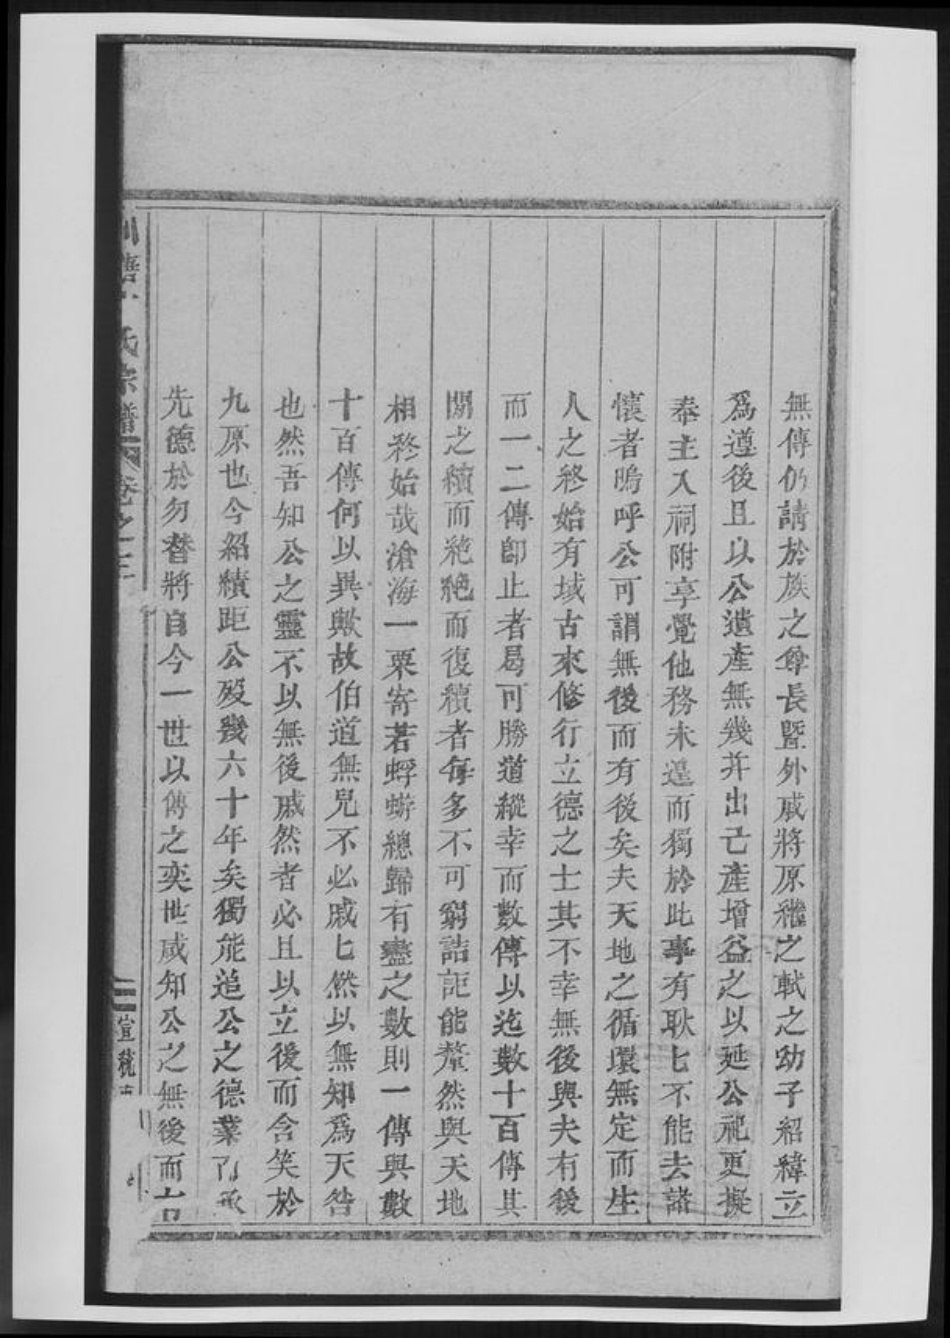 無傳仍請於族之尊長暨外戚將原繼之軾之幼子紹緯立
爲遵後且以公遺產無幾并出己產增益之以延公祀更擬
奉主入祠附享覺他務未遑而獨於此事有耿匕不能去諸
懷者嗚呼公可謂無後而有後矣夫天地之循環無定而生
人之終始有域古來修行立德之士其不幸無後與夫有後
而一二傳卽止者曷可勝道縱幸而數傳以迄數十百傳其
間之續而絶絶而復續者每多不可窮詰詎能釐然與天地
相終始哉滄海一粟寄若蜉蝣總歸有盡之數則一傳與數
十百傳何以異歟故伯道無兒不必戚匕然以無知爲天咎
也然吾知公之靈不以無後戚然者必且以立後而含笑於
九原也今紹績距公歿幾六十年矣獨能追公之德業
先德於勿替將自今一世以傳之奕世咸知公之無後而
氏宗譜 卷之三